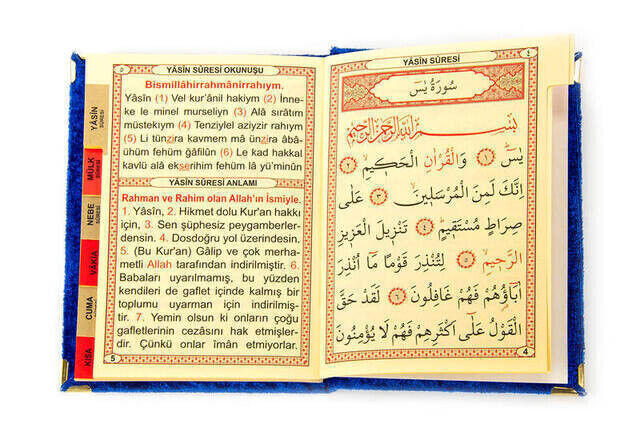 YÂSÎN SÛRESİ OKUNUŞU
٥
Bismillâhirrahmânirrahıym.
Yâsîn (1) Vel kur'ânil hakiym (2) İnne-
ke le minel murseliyn (3) Alâ sırâtım
müstekıym (4) Tenziylel aziyzir rahıym
(5) Li tünzira kavmem mâ ünzira âbâ-
ühüm fehüm ğâfilûn (6) Le kad hakkal
kavlü alâ ekserihim fehüm lâ yü'minûn
YÂSÎN SÛRESİ ANLAMI
Rahman ve Rahim olan Allah'ın ismiyle.
1. Yâsîn, 2. Hikmet dolu Kur'an hakkı
için, 3. Sen şüphesiz peygamberler-
densin. 4. Dosdoğru yol üzerindesin.
5. (Bu Kur'an) Gâlip ve çok merha-
metli Allah tarafından indirilmiştir. 6.
Babaları uyarılmamış, bu yüzden
kendileri de gaflet içinde kalmış bir
toplumu uyarman için indirilmiş-
tir. 7. Yemin olsun ki onların çoğu
gafletlerinin cezasını hak etmişler-
dir. Çünkü onlar îmân etmiyorlar.
5
YÂSİN
SÛRESİ
MÜLK
SÛRESİ
NEBE
SÛRESİ
VÂKIA
CUMA
KISA
YÂSÎN SÛRESİ
٤
سُورَةُ يٰسٓ
بِسْمِ اللّٰهِ الرَّحْمٰنِ الرَّحِيمِ
يٰسٓ ﴿١﴾ وَالْقُرْاٰنِ الْحَكِيمِ ﴿٢﴾
اِنَّكَ لَمِنَ الْمُرْسَلِينَ ﴿٣﴾ عَلٰى
صِرَاطٍ مُسْتَقِيمٍ ﴿٤﴾ تَنْزِيلَ الْعَزِيزِ
الرَّحِيمِ ﴿٥﴾ لِتُنْذِرَ قَوْمًا مَٓا اُنْذِرَ
اٰبَٓاؤُهُمْ فَهُمْ غَافِلُونَ ﴿٦﴾ لَقَدْ حَقَّ
الْقَوْلُ عَلٰٓى اَكْثَرِهِمْ فَهُمْ لَا يُؤْمِنُونَ
4